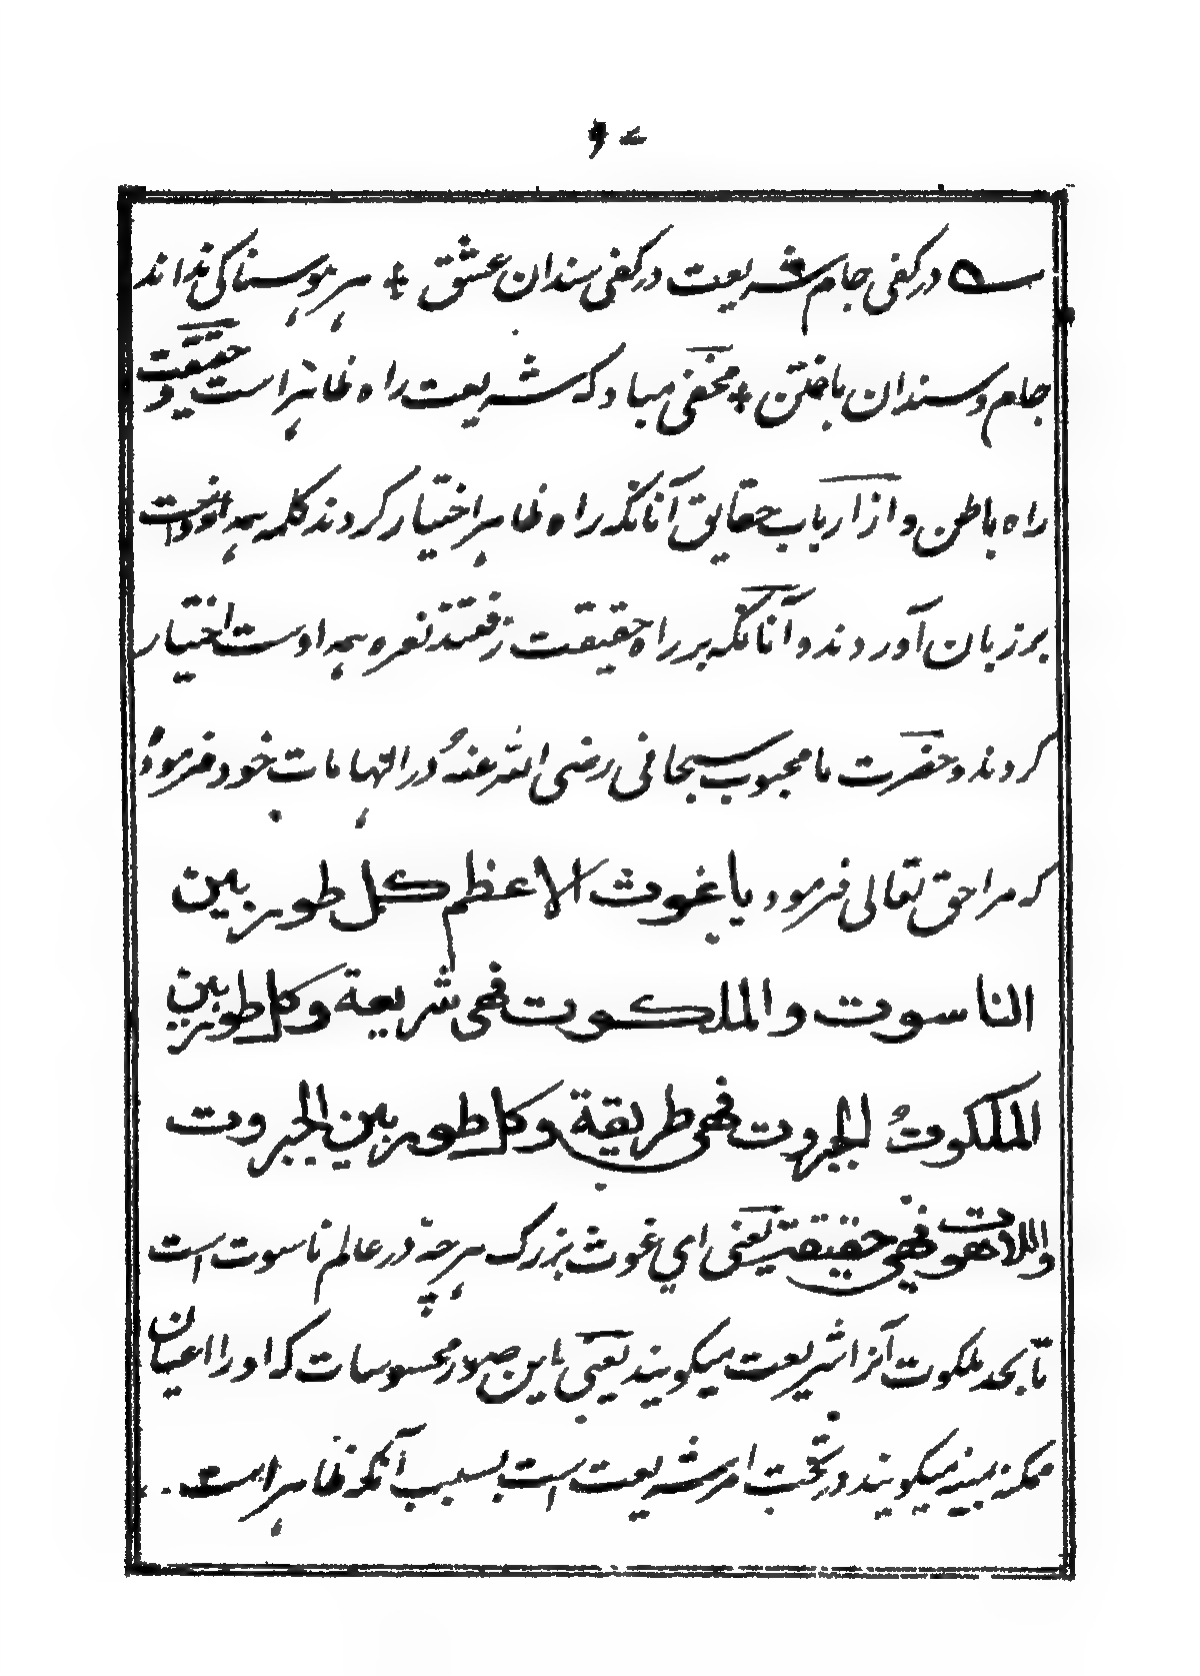 در کفی جام شریعت در کفی سندان عشق + ہر ہوسناکی نداند
جام و سندان باختن + مخفی مباد که شریعت راه ظاہر است و حقیقت
راه باطن و از ارباب حقایق آنانکه راه ظاہر اختیار کردند کلمه ہمه از وست
بر زبان آوردند و آنانکه بر راه حقیقت رفتند نعره ہمه اوست اختیار
کردند و حضرت ما محبوب سبحانی رضی الله عنه در الہامات خود فرموده
که مرا حق تعالی فرمود یا غوث الاعظم کل طور بین
الناسوت والملکوت فهی شریعة وکل طور بین
الملکوت والجبروت فهی طریقة وکل طور بین الجبروت
واللاهوت فهی حقیقة یعنی ای غوث بزرگ ہرچه در عالم ناسوت است
تا بحد ملکوت آنرا شریعت میگویند یعنی باین صور محسوسات که او را اعیان
ممکنه میگویند در تحت امر شریعت است بسبب آنکه ظاہر است